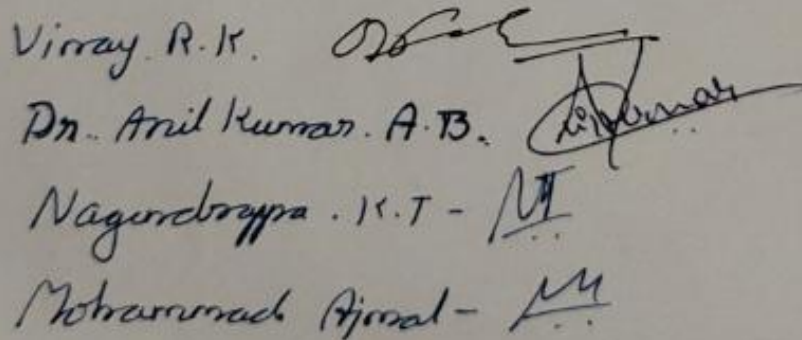 Vinay R.K.
Dr. Anil Kumar. A.B.
Nagendrappa. K.T -
Mohammad Ajmal -